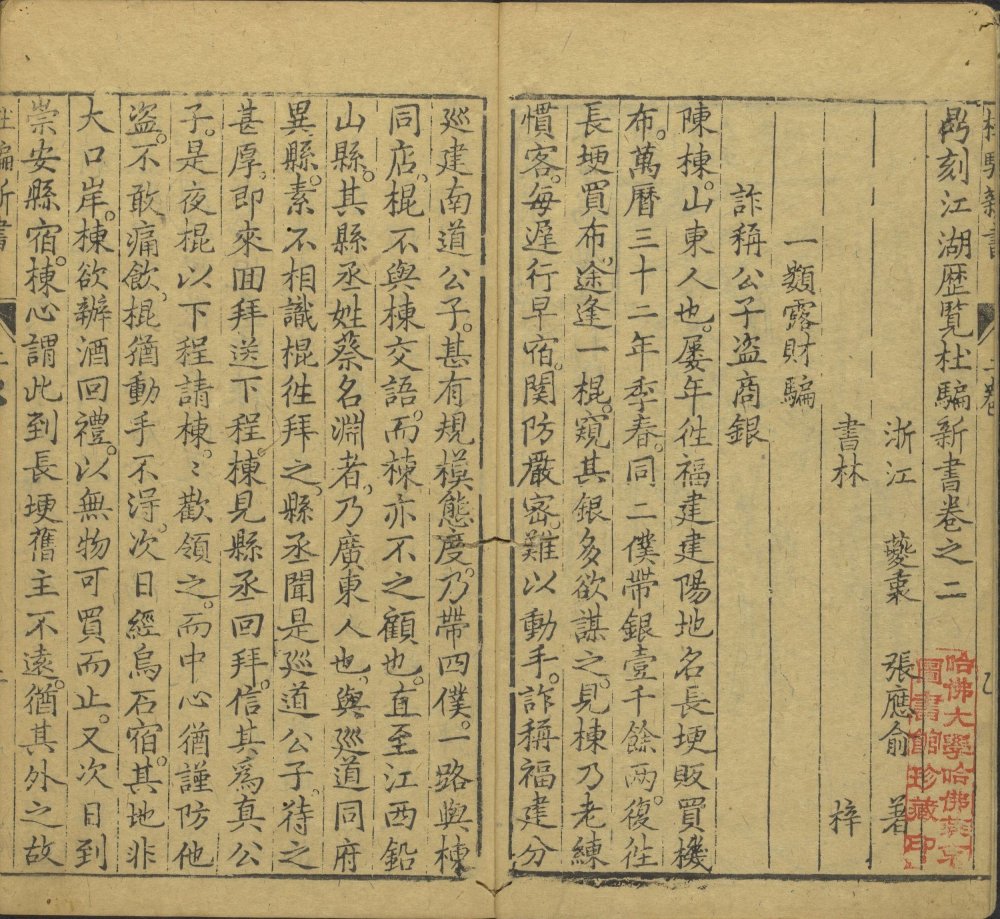 鼎刻江湖歷覽杜騙新書卷之二
浙江 夔衷 張應俞 著
書林 梓
一類露財騙
詐稱公子盜商銀
陳棟。山東人也。屢年徃福建建陽地名長埂販買機
布。萬曆三十二年季春。同二僕帶銀壹千餘兩。復徃
長埂買布。途逢一棍。窺其銀多欲謀之。見棟乃老練
慣客。每遲行早宿。関防嚴密。難以動手。詐稱福建分
廵建南道公子。甚有規模態度。乃帶四僕。一路與棟
同店。棍不與棟交語。而棟亦不之顧也。直至江西鉛
山縣。其縣丞姓蔡名淵者。乃廣東人也。與廵道同府
異縣。素不相識棍徃拜之。縣丞聞是廵道公子。待之
甚厚。即來囬拜送下程。棟見縣丞回拜。信其爲真公
子。是夜棍以下程請棟。〻歡領之。而中心猶謹防他
盜。不敢痛飲。棍猶動手不淂。次日經烏石宿。其地非
大口岸。棟欲辦酒回禮。以無物可買而止。又次日到
崇安縣宿。棟心謂此到長埂舊主不遠。猶其外之故
哈佛大學哈佛燕京
圖書館珍藏印